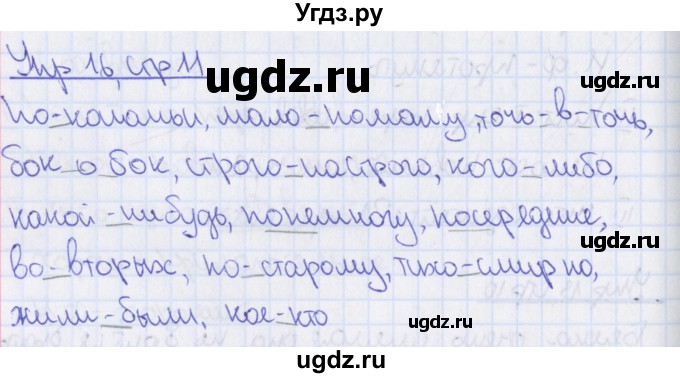 Угдз.ру
Упр 16, стр 11
ugdz.ru
ugdz.ru
по-каланьи, мало-помалу, точь-в-точь,
бок о бок, строго-настрого, кого-либо,
какой-нибудь, понемногу, посередине,
во-вторых, по-старому, тихо-смирно,
ugdz.ru
ugdz.ru
жили-были, кое-кто
ugdz.ru